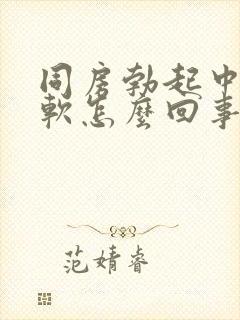 同房勃起中
軟怎麼回事
范婧睿